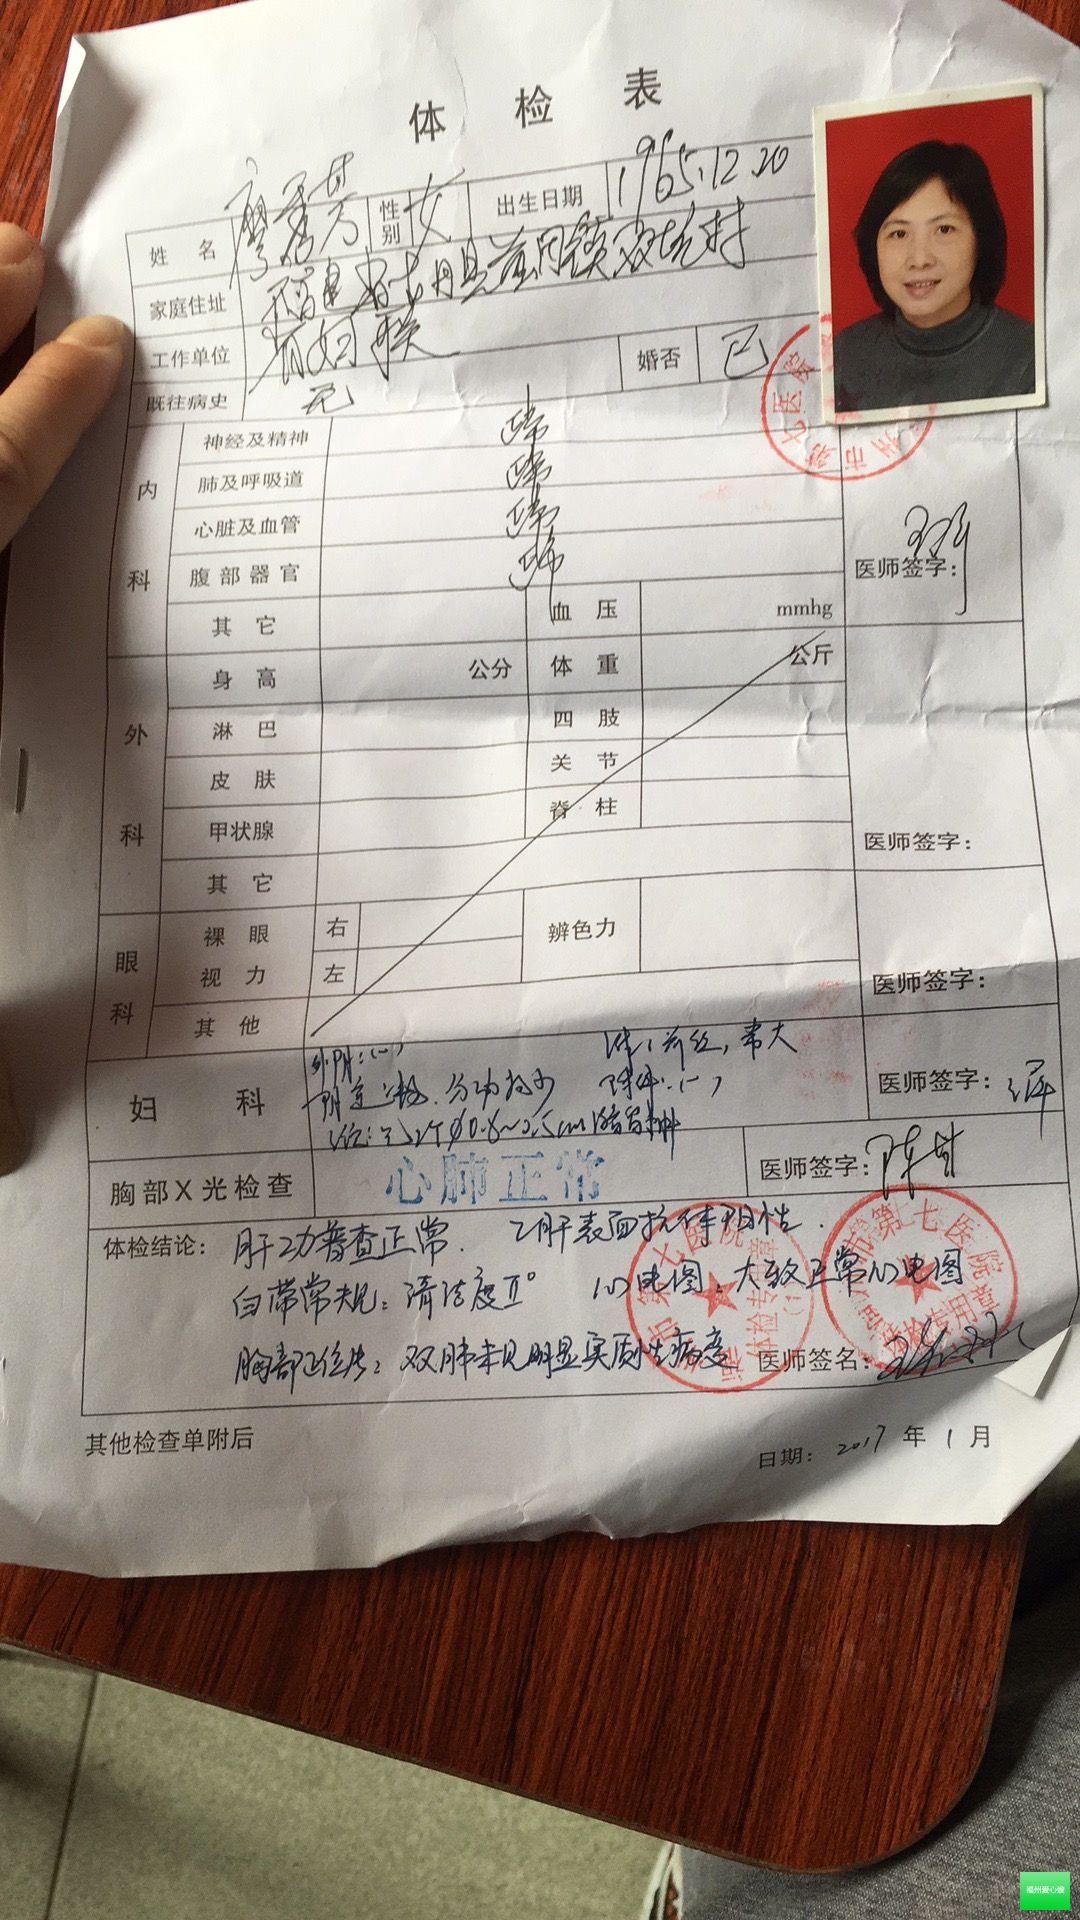 体检表
姓名 廖秀芳 性别 女 出生日期 1965.12.20
家庭住址 福建省 县 镇 村
工作单位 婚否 已
既往病史 无
内科 神经及精神 正常
肺及呼吸道 正常
心脏及血管 正常
腹部器官 正常
医师签字:
其它 血压 mmhg
外科 身高 公分 体重 公斤
淋巴 四肢
皮肤 关节
甲状腺 脊柱
其它
医师签字:
眼科 裸眼视力 右 左 辨色力
其他
医师签字:
妇科 外阴:(-)
附件:(-)
医师签字:
胸部X光检查 心肺正常 医师签字:
体检结论: 肝功普查正常. 乙肝表面抗体阳性.
白带常规: 清洁度Ⅱ° 心电图: 大致正常心电图
胸部正位片: 双肺未见明显实质性病变 医师签名:
其他检查单附后
日期: 2017年1月
市第七医院
体检专用章
福州爱心嫂